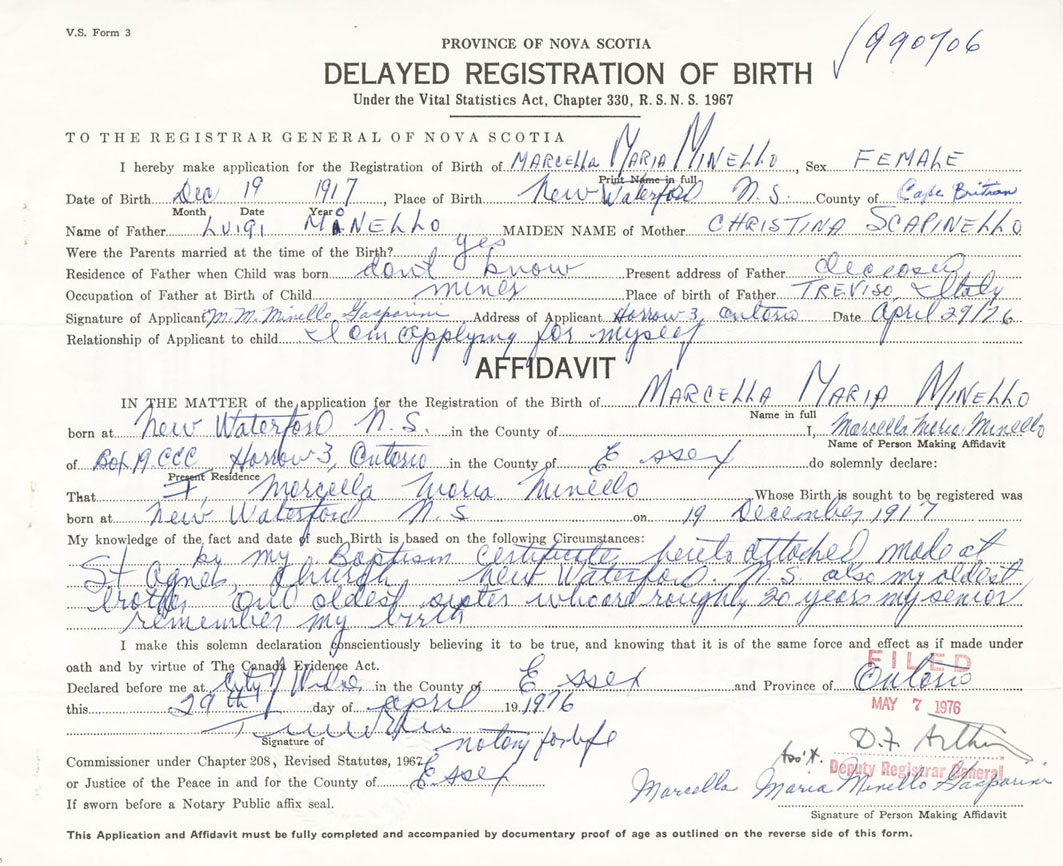 V.S. Form 3
990706
PROVINCE OF NOVA SCOTIA
DELAYED REGISTRATION OF BIRTH
Under the Vital Statistics Act, Chapter 330, R.S.N.S. 1967
TO THE REGISTRAR GENERAL OF NOVA SCOTIA
I hereby make application for the Registration of Birth of MARCELLA MARIA MINELLO, Sex FEMALE
Print Name in full
Date of Birth Dec 19 1917, Place of Birth New Waterford N.S. County of Cape Britian
Month Date Year
Name of Father LUIGI MINELLO MAIDEN NAME of Mother CHRISTINA SCAPINELLO
Were the Parents married at the time of the Birth? yes
Residence of Father when Child was born dont know Present address of Father deceased
Occupation of Father at Birth of Child miner Place of birth of Father TREVISO, Italy
Signature of Applicant M. M. Minello Gasparini Address of Applicant Harrow 3, Ontario Date April 29/76
Relationship of Applicant to child I am applying for myself
AFFIDAVIT
IN THE MATTER of the application for the Registration of the Birth of MARCELLA MARIA MINELLO
Name in full
born at New Waterford N.S. in the County of I, Marcella Maria Minello
Name of Person Making Affidavit
of Box 19 CCC, Harrow 3, Ontario in the County of Essex do solemnly declare:
Present Residence
That I, Marcella Maria Minello Whose Birth is sought to be registered was
born at New Waterford N.S on 19 December 1917
My knowledge of the fact and date of such Birth is based on the following Circumstances:
by my Baptism Certificate, hereto attached made at
St Agnes, Church, New Waterford. N.S also my oldest
brother and oldest sister who are roughly 20 years my senior
remember my birth
I make this solemn declaration conscientiously believing it to be true, and knowing that it is of the same force and effect as if made under
oath and by virtue of The Canada Evidence Act.
FILED
Declared before me at City of in the County of Essex and Province of Ontario
this 29th day of April 19 1976
MAY 7 1976
Signature of
notary for life
D.F. Arthur
Commissioner under Chapter 208, Revised Statutes, 1967
Deputy Registrar General
or Justice of the Peace in and for the County of Essex
Marcella Maria Minello Gasparini
If sworn before a Notary Public affix seal.
Signature of Person Making Affidavit
This Application and Affidavit must be fully completed and accompanied by documentary proof of age as outlined on the reverse side of this form.